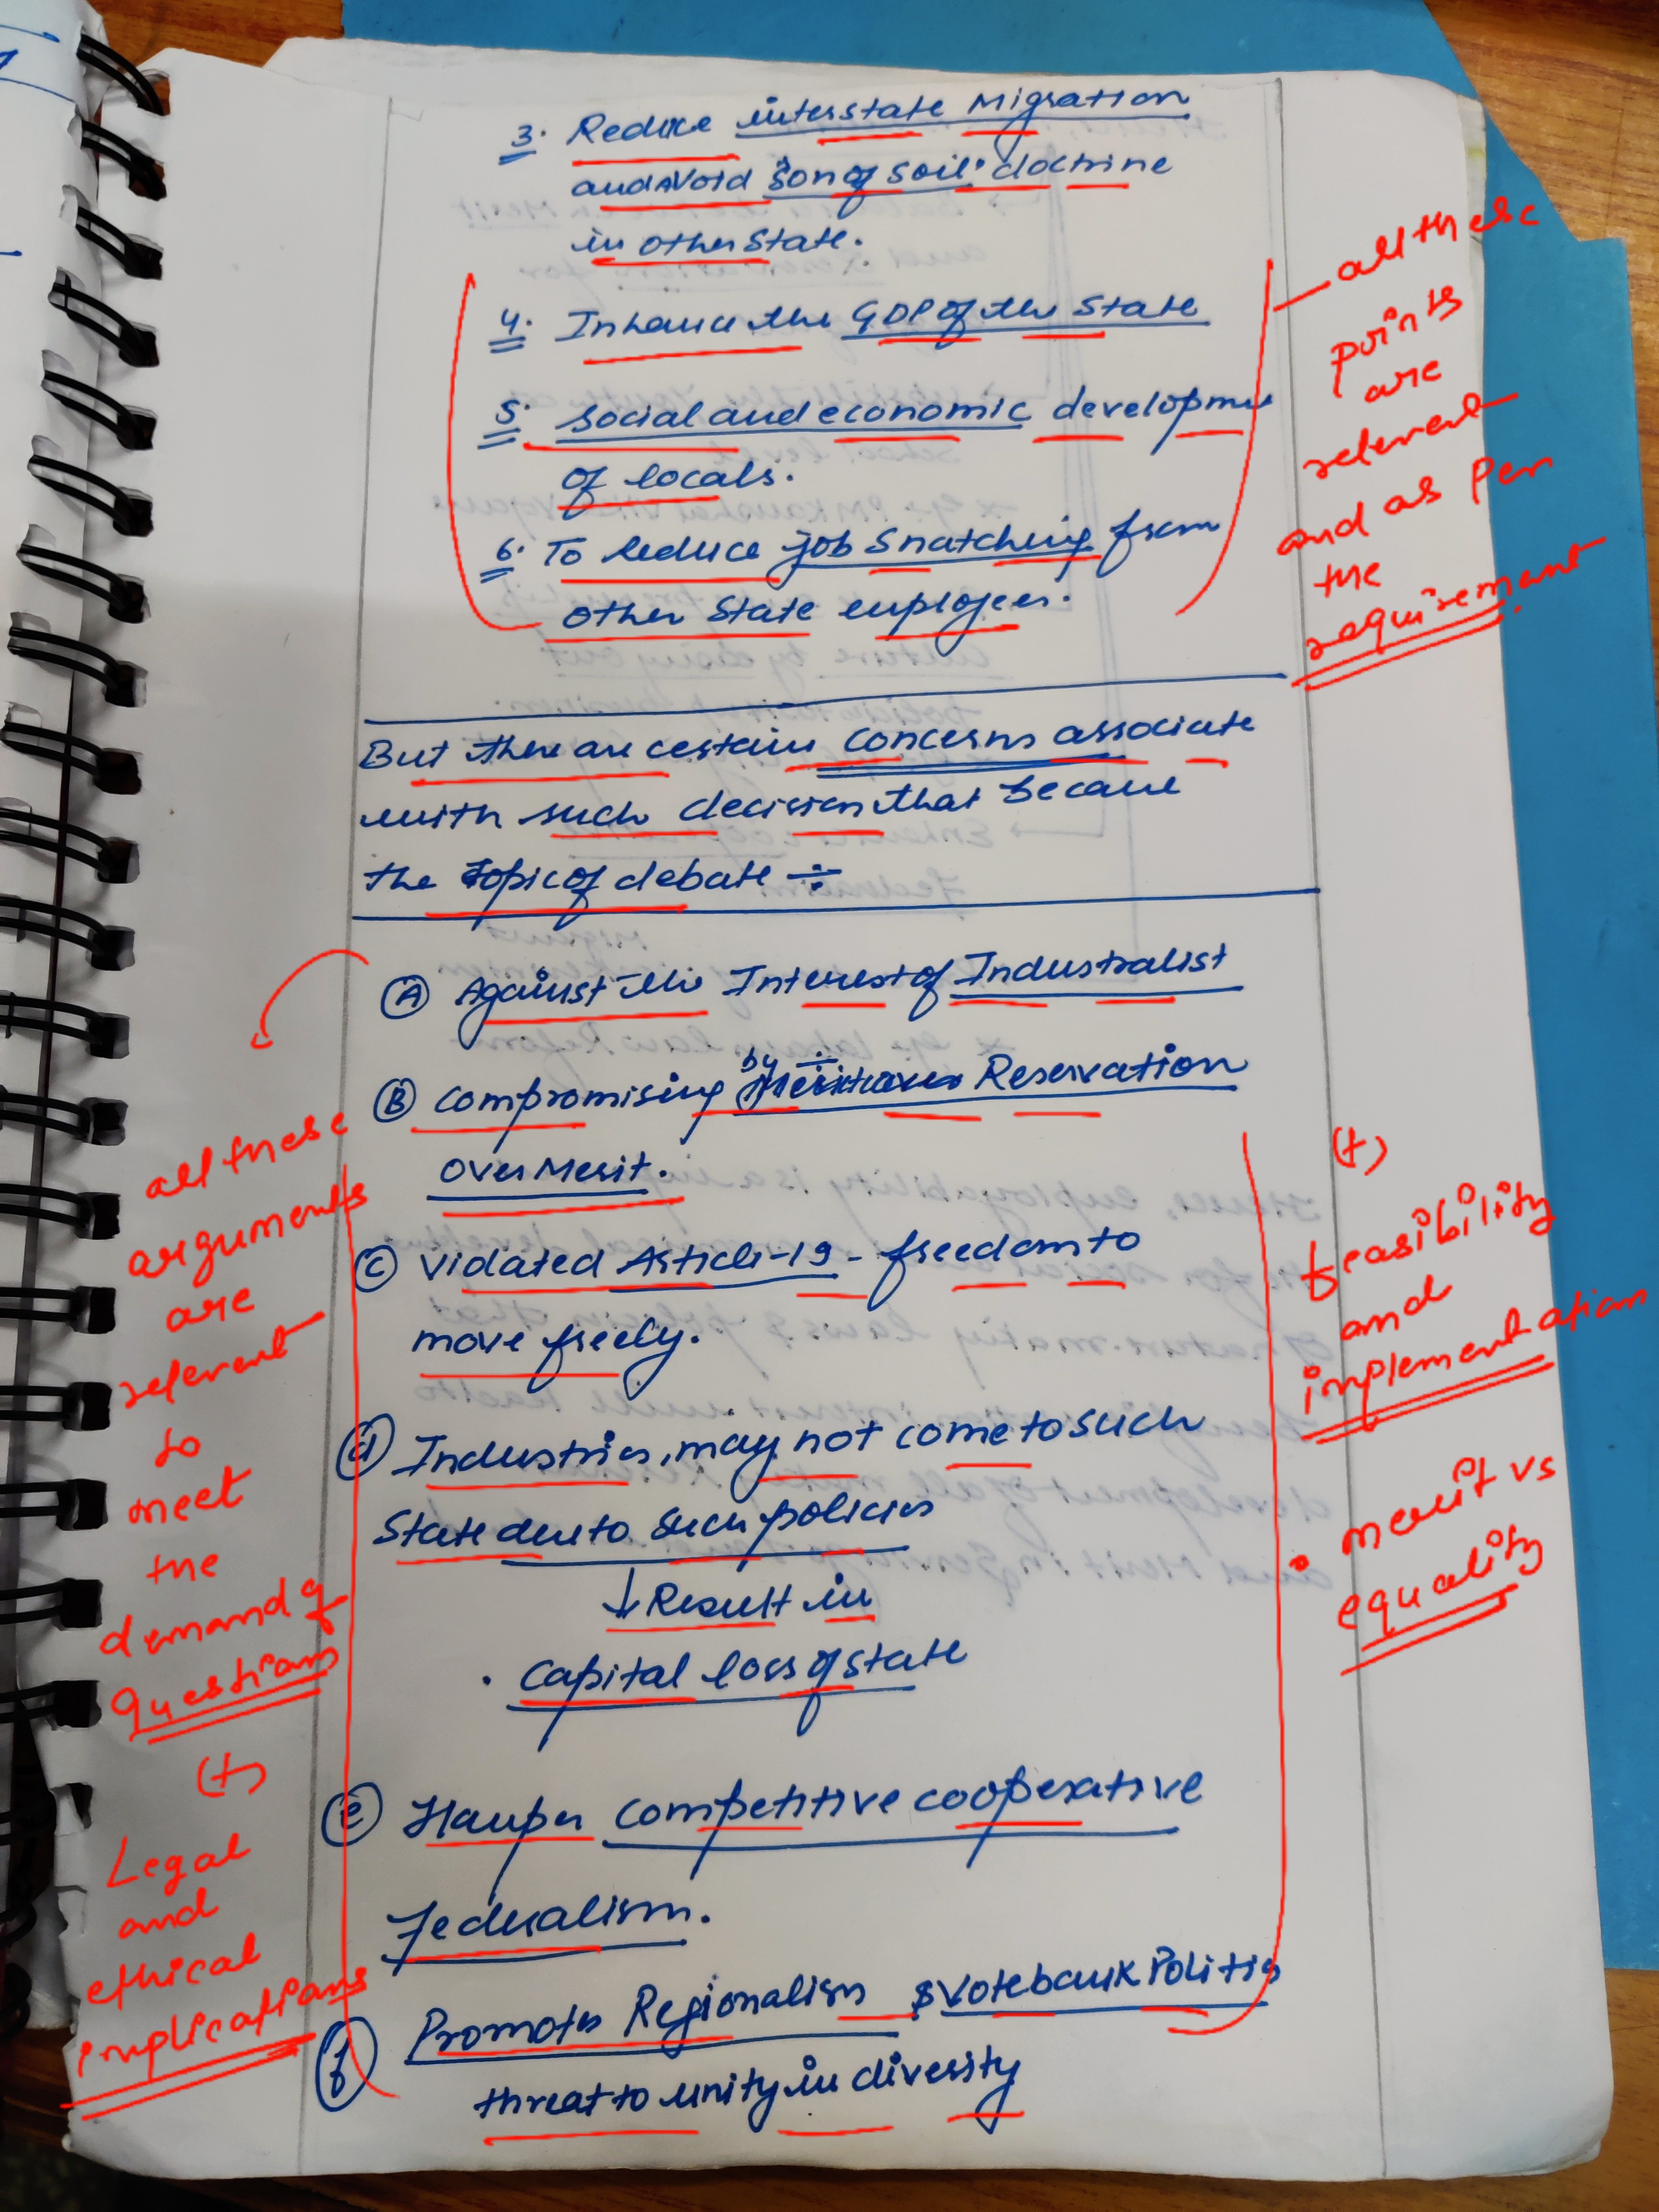 3. Reduce interstate Migration
and avoid "son of soil" doctrine
in other state.
4. Inhance the GDP of the State
5. Social and economic developme
of locals.
6. To reduce job snatching from
other state employees.
all these
points
are
relevent
and as per
the
requirement
But there are certain concerns associate
with such decision that became
the topic of debate ÷
(A) Against the Interest of Industralist
(B) compromising by Reservation
over Merit.
(C) Violated Article-19 - freedom to
move freely.
(d) Industries, may not come to such
State due to such policies
↓ Result in
. Capital loss of state
(e) Hamper competitive cooperative
federalism.
(f) Promotes Regionalism & Votebank Politis
threat to unity in diversity
all these
arguments
are
relevent
to
meet
the
demand of
question
(+)
Legal
and
ethical
implications
(+)
feasibility
and
implementation
• merit vs
equality